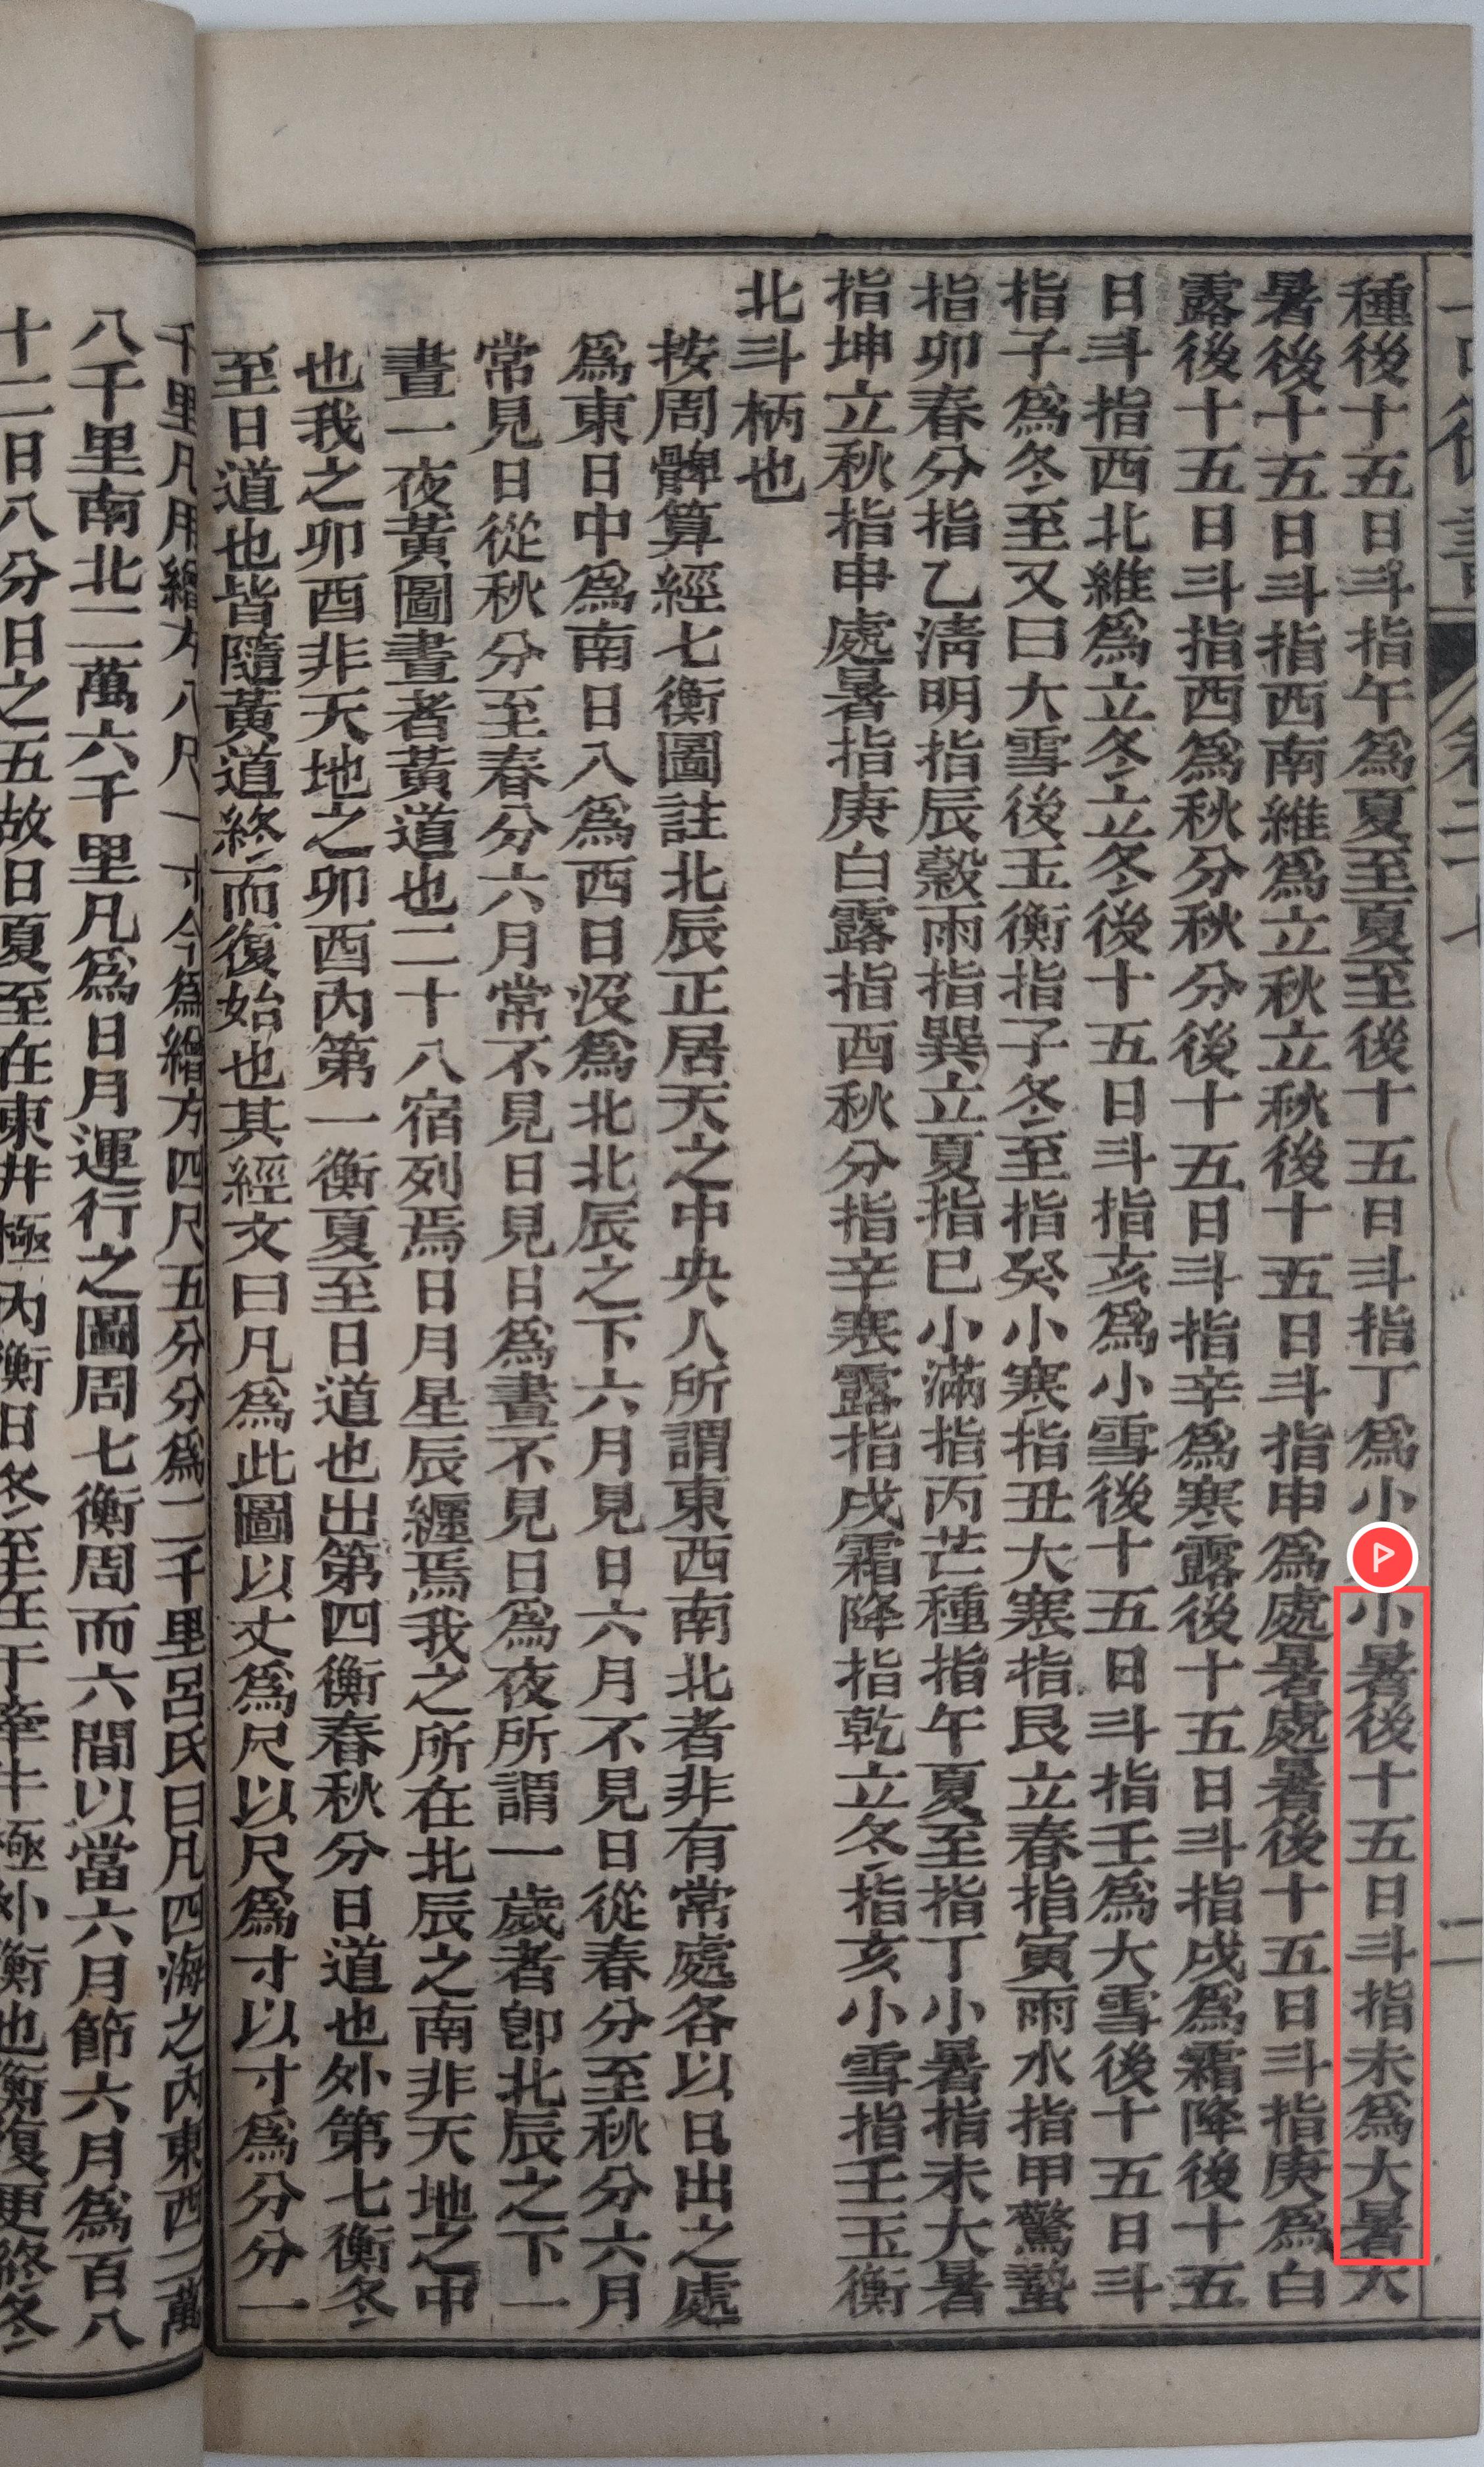 種後十五日斗指午爲夏至夏至後十五日斗指丁爲小小暑後十五日斗指未爲大暑大
暑後十五日斗指西南維爲立秋立秋後十五日斗指申爲處暑處暑後十五日斗指庚爲白
露後十五日斗指酉爲秋分秋分後十五日斗指辛爲寒露後十五日斗指戌爲霜降後十五
日斗指西北維爲立冬立冬後十五日斗指亥爲小雪後十五日斗指壬爲大雪後十五日斗
指子爲冬至又曰大雪後玉衡指子冬至指癸小寒指丑大寒指艮立春指寅雨水指甲驚蟄
指卯春分指乙淸明指辰穀雨指巽立夏指巳小滿指丙芒種指午夏至指丁小暑指未大暑
指坤立秋指申處暑指庚白露指酉秋分指辛寒露指戌霜降指乾立冬指亥小雪指壬玉衡
北斗柄也
按周髀算經七衡圖註北辰正居天之中央人所謂東西南北者非有常處各以日出之處
爲東日中爲南日入爲西日沒爲北北辰之下六月見日六月不見日從春分至秋分六月
常見日從秋分至春分六月常不見日見日爲晝不見日爲夜所謂一歲者卽北辰之下一
晝一夜黃圖晝者黃道也二十八宿列焉日月星辰纏焉我之所在北辰之南非天地之中
也我之卯酉非天地之卯酉內第一衡夏至日道也出第四衡春秋分日道也外第七衡冬
至日道也皆隨黃道終而復始也其經文曰凡爲此圖以丈爲尺以尺爲寸以寸爲分分一
千里凡用繒方八尺一寸今爲繒方四尺五分分爲二千里呂氏曰凡四海之內東西二萬
八千里南北二萬六千里凡爲日月運行之圖周七衡周而六間以當六月節六月爲百八
十二日八分日之五故日夏至在東井極內衡日冬至在牽牛極外衡也衡復更終冬